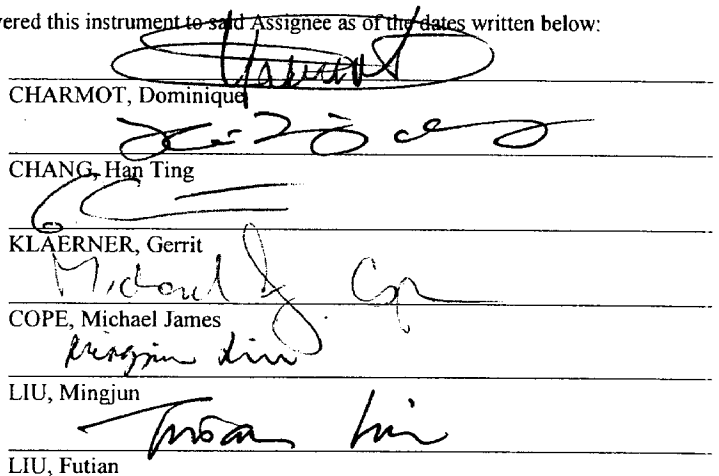 vered this instrument to said Assignee as of the dates written below:
CHARMOT, Dominique
CHANG, Han Ting
KLAERNER, Gerrit
Michael J. Cope
COPE, Michael James
Mingjun Liu
LIU, Mingjun
LIU, Futian